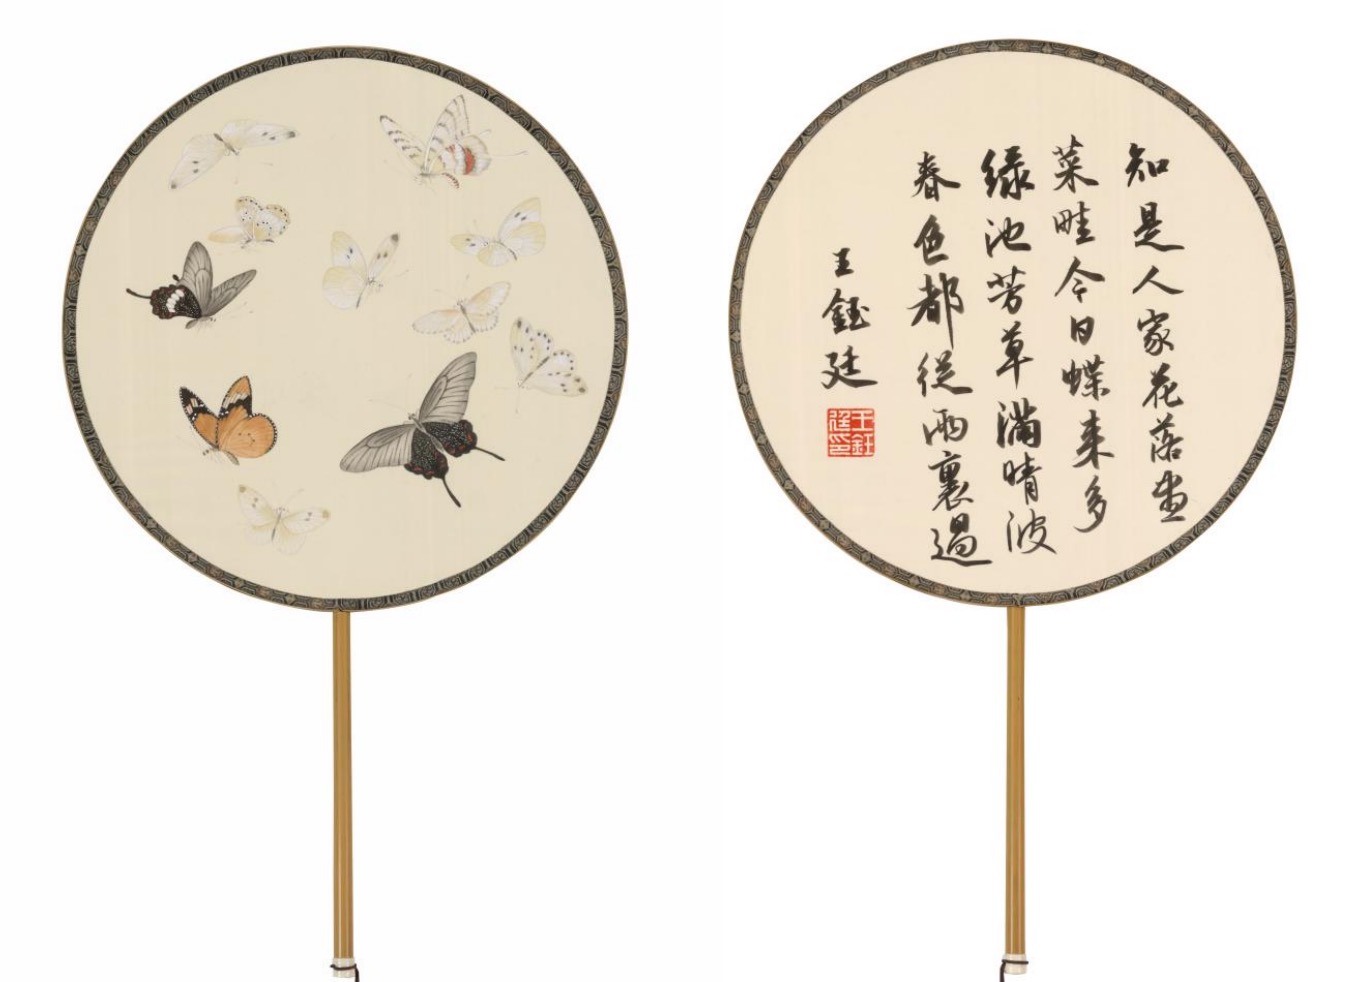 知是人家花落盡
菜畦今日蝶来多
緑池芳草滿晴波
春色都從雨裏過
王鈺廷
王鈺廷印